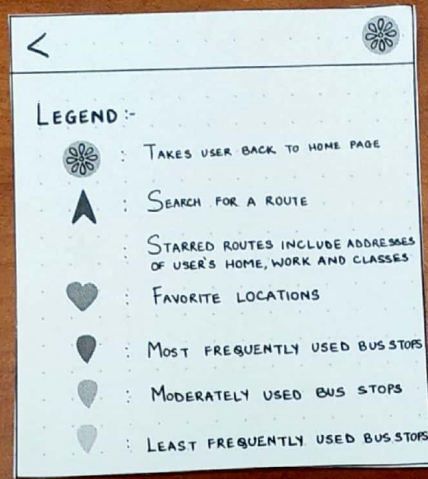 <
LEGEND:-
: TAKES USER BACK TO HOME PAGE
: SEARCH FOR A ROUTE
: STARRED ROUTES INCLUDE ADDRESSES
OF USER'S HOME, WORK AND CLASSES
: FAVORITE LOCATIONS
: MOST FREQUENTLY USED BUS STOPS
: MODERATELY USED BUS STOPS
: LEAST FREQUENTLY USED BUS STOPS